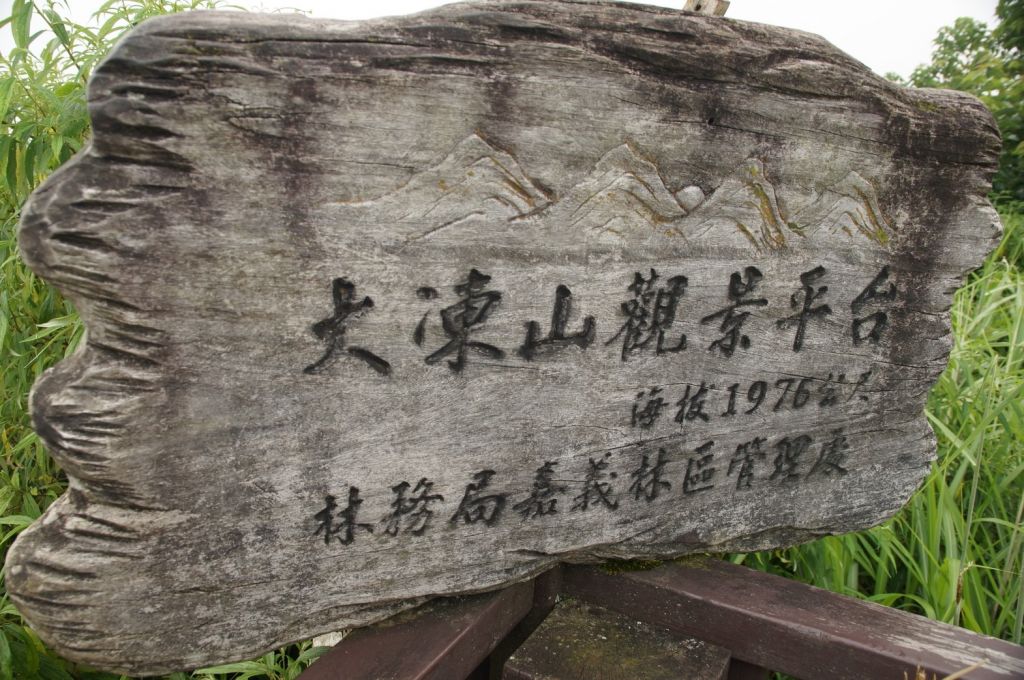 大凍山觀景平台
海拔1976公尺
林務局嘉義林區管理處